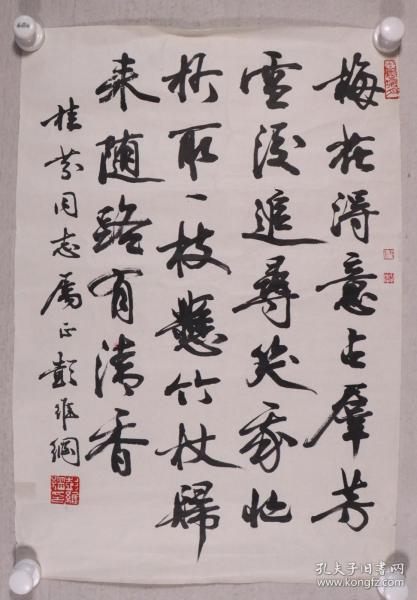 梅花得意占羣芳
雪後追尋笑我忙
折取一枝懸竹杖歸
来随路有清香
桂芬同志属正 彭維綱
孔夫子旧书网
www.kongfz.com